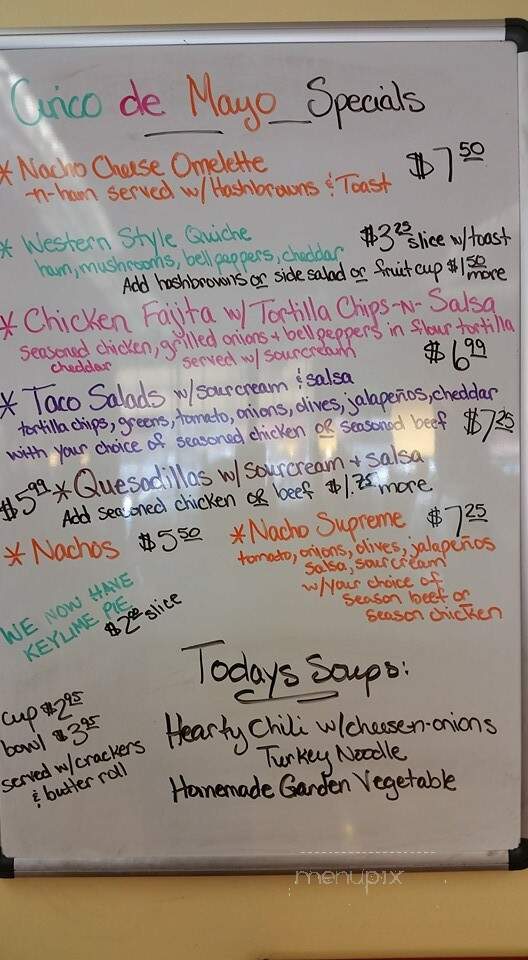 Cinco de Mayo Specials
* Nacho Cheese Omelette $7.50
-n-ham served w/Hashbrowns & Toast
* Western Style Quiche $3.25 slice w/toast
ham, mushrooms, bell peppers, cheddar
Add hashbrowns or side salad or fruit cup $1.50 more
* Chicken Fajita w/Tortilla Chips-N-Salsa
seasoned chicken, grilled onions + bell peppers in flour tortilla
cheddar served w/sourcream $6.99
* Taco Salads w/sourcream & salsa
tortilla chips, greens, tomato, onions, olives, jalapeños, cheddar
with your choice of seasoned chicken or seasoned beef $7.25
$5.99 * Quesadillas w/sourcream + salsa
Add seasoned chicken or beef $1.75 more
* Nachos $5.50
* Nacho Supreme $7.25
tomato, onions, olives, jalapeños
salsa, sourcream
w/your choice of
season beef or
season chicken
WE NOW HAVE
KEYLIME PIE
$2.00 slice
Todays Soups:
cup $2.95
bowl $3.95
served w/crackers
& butter roll
Hearty Chili w/cheese-n-onions
Turkey Noodle
Homemade Garden Vegetable
menupix